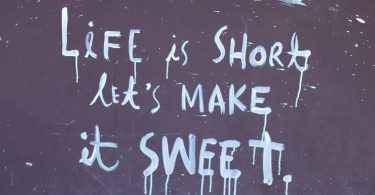 LiFE is SHORt
LET'S MAKE
it SWEET.